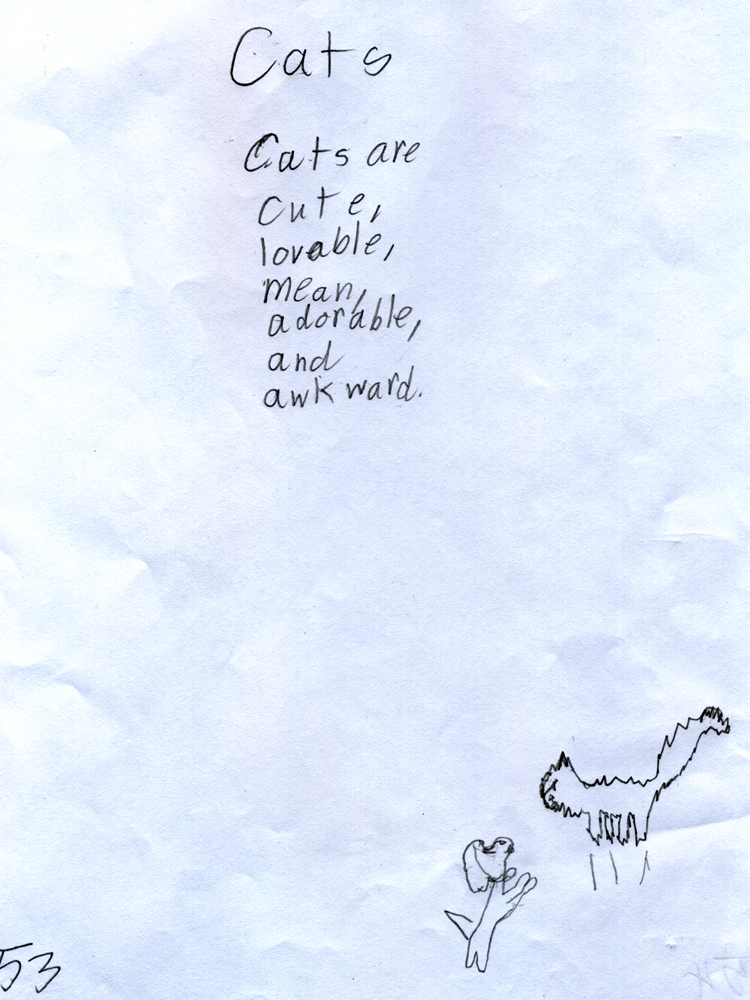 Cats
Cats are
cute,
lovable,
mean,
adorable,
and
awkward.
53